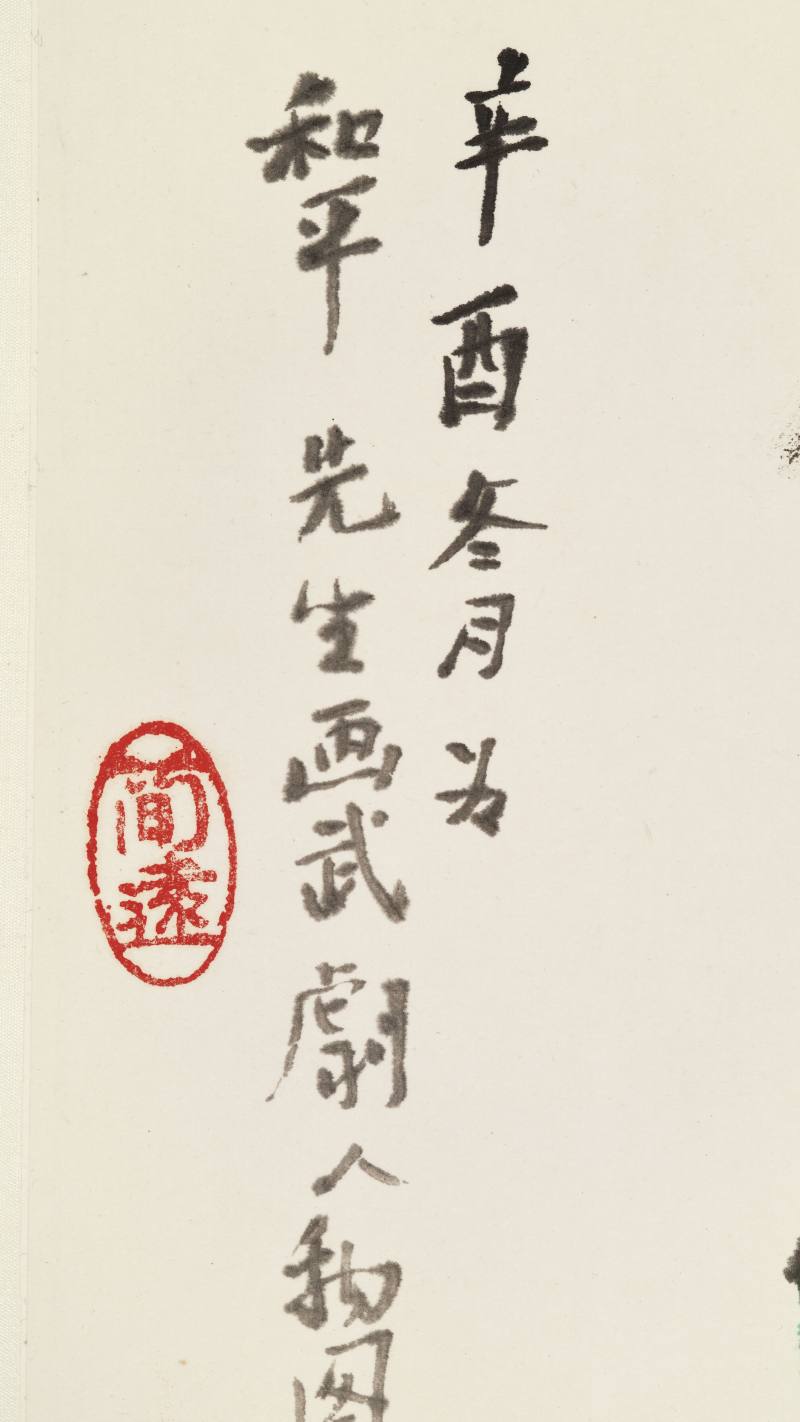 辛酉冬月为
和平先生画武劇人物图
间遠